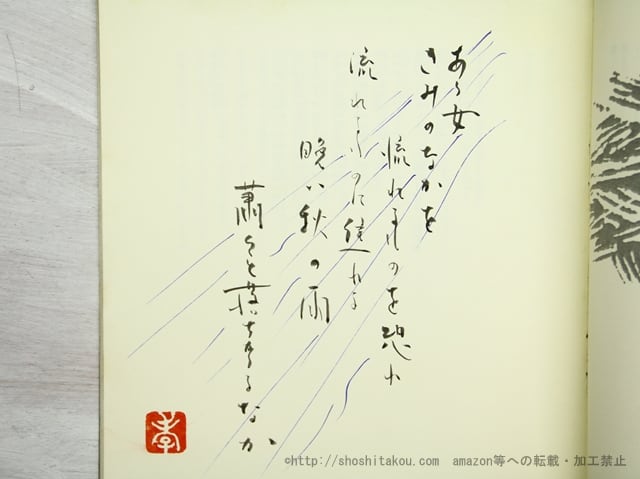 あゝ女
きみのなかを
流れるものを恐れ
流れるものに憧れる
晩い秋の雨
蕭々と落ちるなか
©http://shoshitakou.com amazon等への転載・加工禁止